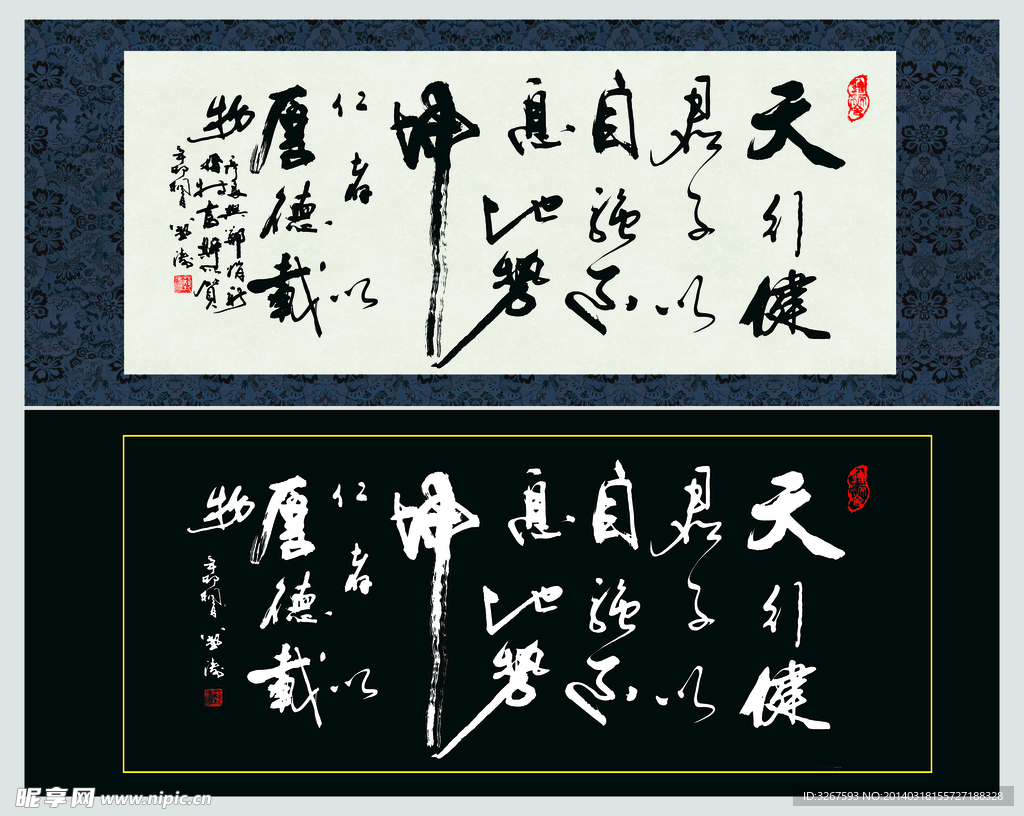 天行健
君子以
自强不
息地势
坤
仁者以
厚德载
物
天行健
君子以
自强不
息地势
坤
仁者以
厚德载
物
昵享网 www.nipic.cn
ID:3267593 NO:20140318155727188328